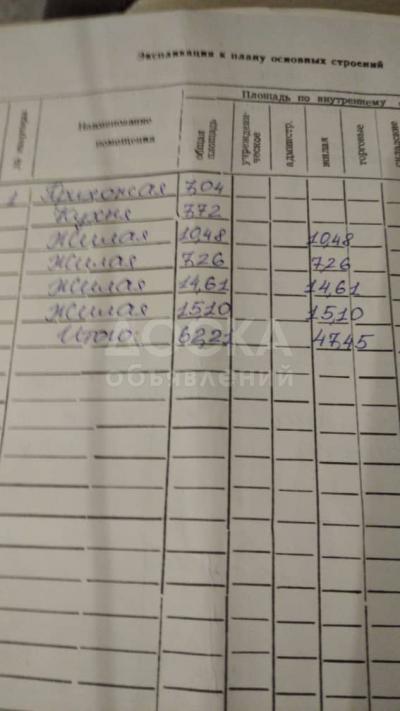 Экспликация к плану основных строений
Площадь по внутреннему
Наименование помещения
общая площадь
учрежденческое
администр.
жилая
торговые
складские
1 Прихожая 7,04
Кухня 7,72
Жилая 10,48 10,48
Жилая 7,26 7,26
Жилая 14,61 14,61
Жилая 15,10 15,10
Итого: 62,21 47,45
ДОСКА
объявлений